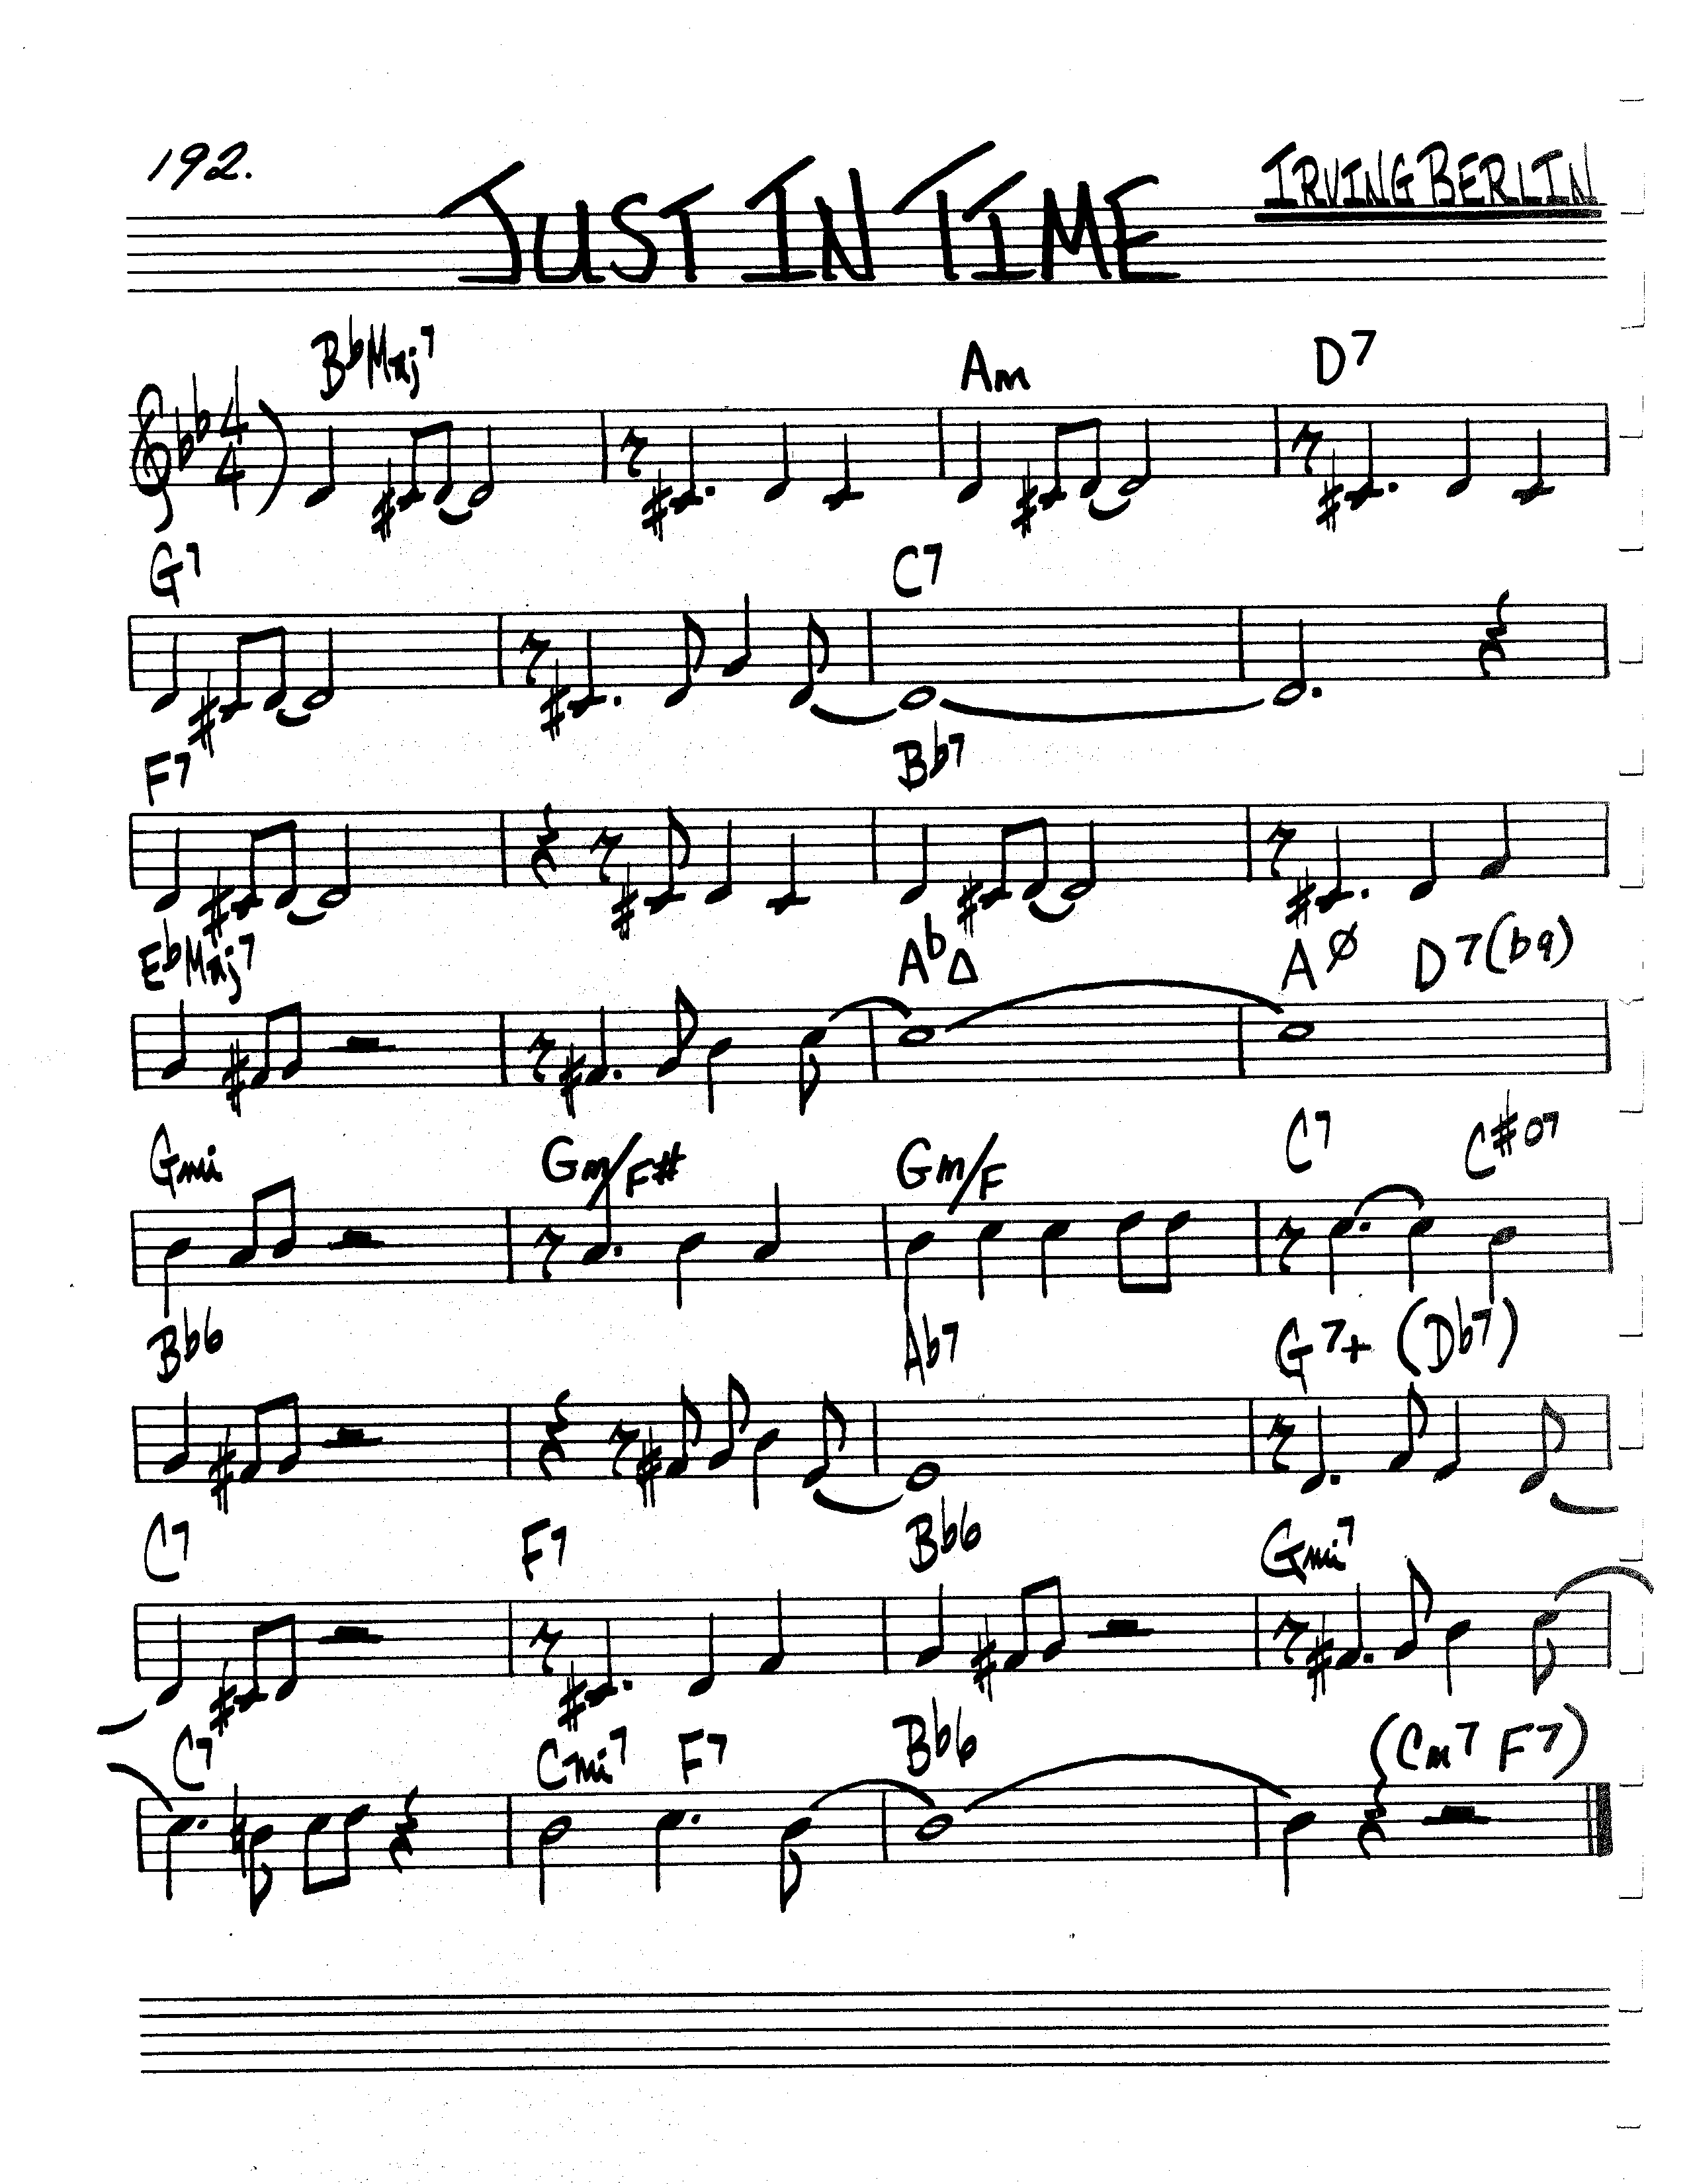 192.
JUST IN TIME
IRVING BERLIN
4
4
BbMaj7 Am D7
G7 C7
F7 Bb7
EbMaj7 AbΔ AØ D7(b9)
Gmi Gm/F# Gm/F C7 C#o7
Bb6 Ab7 G7+ (Db7)
C7 F7 Bb6 Gmi7
C7 Cmi7 F7 Bb6 (Cm7 F7)